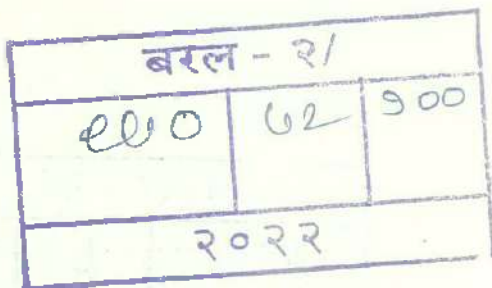 बरल - २/
७२ १००
२०२२